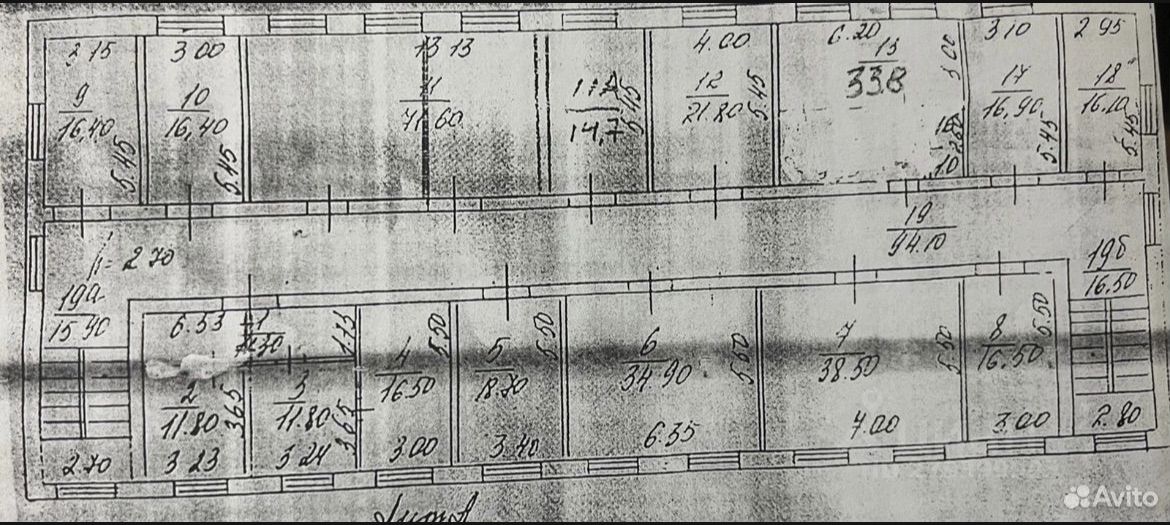 3 15
3.00
13 13
4.00
6.20
3 10
2 95
9
16,40
5.45
10
16,40
5.45
11
71.60
14,7
5,45
12
21.80
5.45
13
33.8
3 00
17
16,90
5.45
18
16.10
5.45
h = 2 70
19
94.10
19a
15 90
19б
16.50
6.53
1
1.75
2
11.80
3.65
3 23
3
11.80
3.65
3 24
4
16.50
5.50
3.00
5
18.70
5.50
3.40
6
34.90
5.50
6.35
7
38.50
5.50
7.00
8
16.50
5.50
3.00
2.70
2.80
Avito